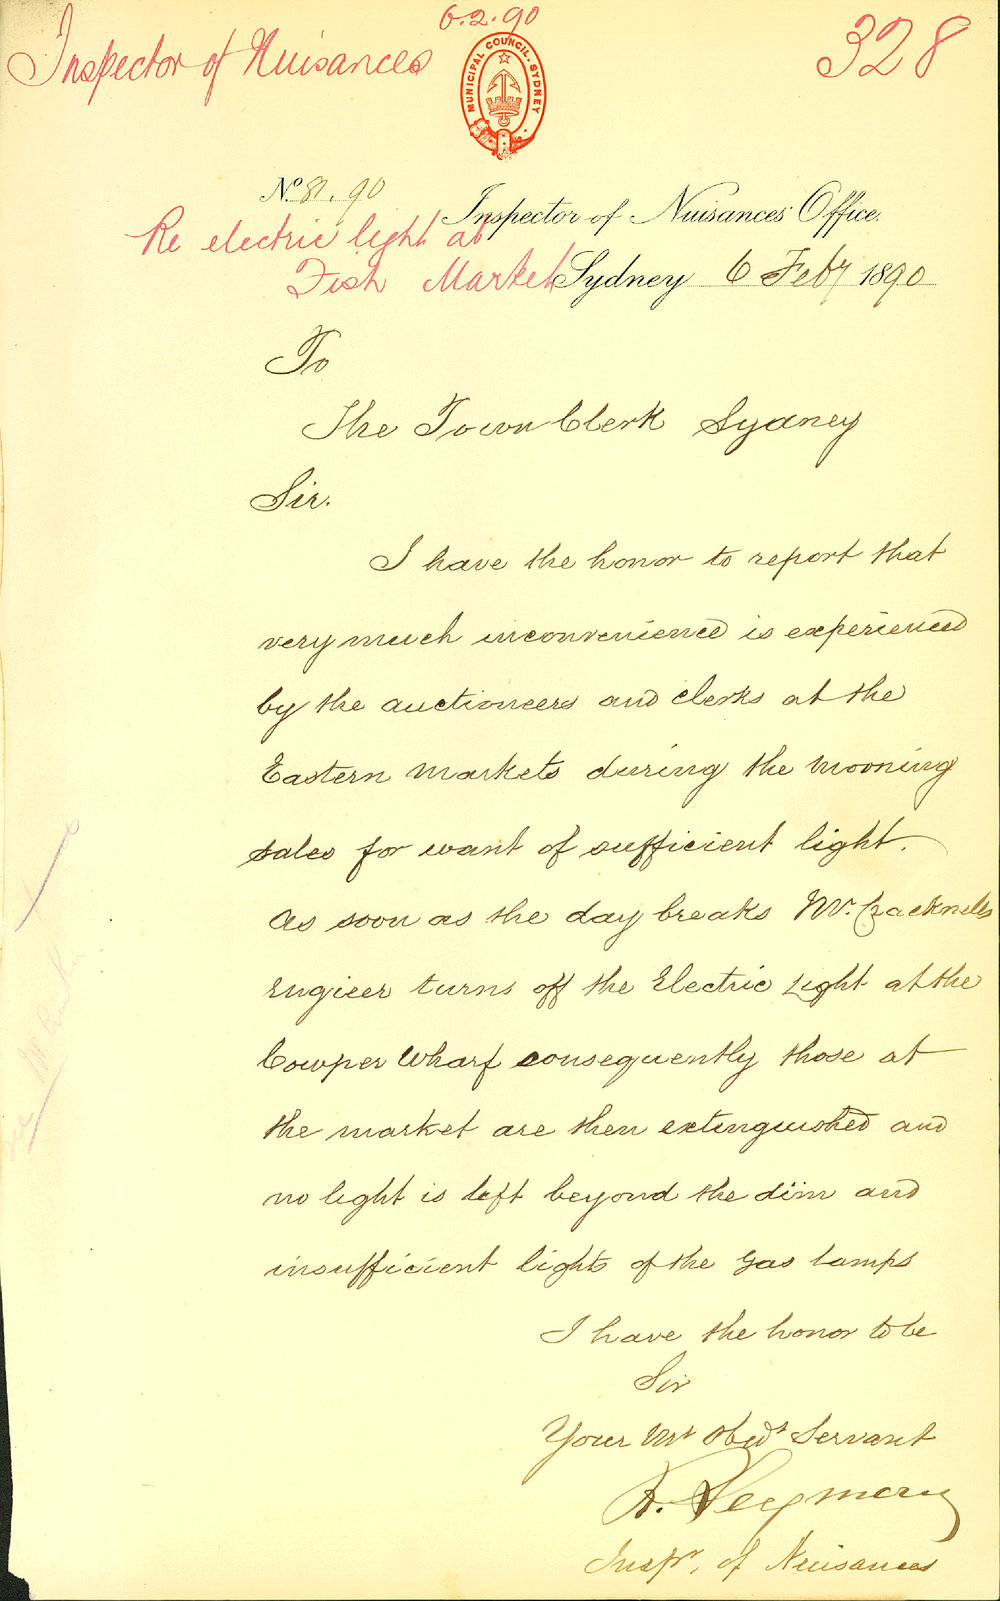 6.2.90
Inspector of Nuisances
328
MUNICIPAL COUNCIL. SYDNEY
No 81.90
Inspector of Nuisances Office.
Re electric light at
Fish Market
Sydney 6 Feby 1890
To
The Town Clerk Sydney
Sir.
I have the honor to report that
very much inconvenience is experienced
by the auctioneers and clerks at the
Eastern Markets during the morning
sales for want of sufficient light.
As soon as the day breaks Mr. Cracknells
Engieer turns off the Electric Light at the
Cowper Wharf consequently those at
the market are then extinguished and
no light is left beyond the dim and
insufficient lights of the gas lamps
I have the honor to be
Sir
Your Mt Obedt Servant
R. Seymour
Inspr. of Nuisances